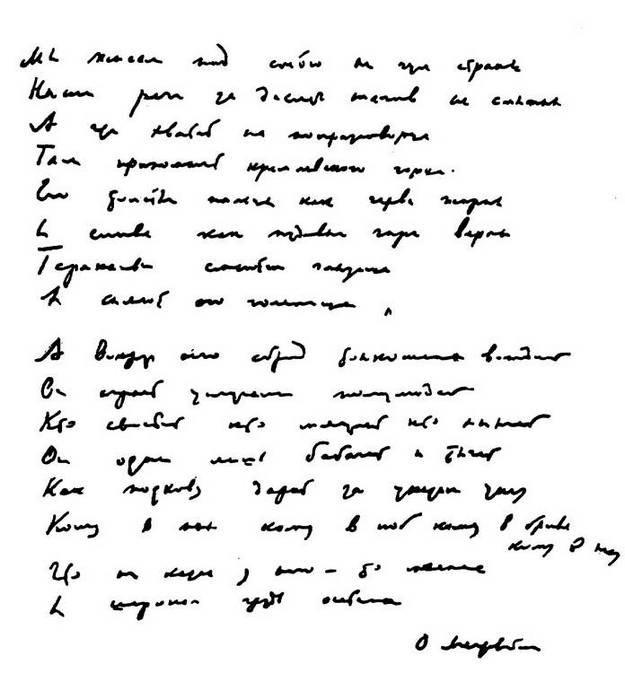 Мы живем под собою не чуя страны
Наши речи за десять шагов не слышны
А где хватит на полразговорца
Там припомнят кремлевского горца.
Его толстые пальцы как черви жирны
И слова как пудовые гири верны
Тараканьи смеются глазища
И сияют его голенища
А вокруг него сброд тонкошеих вождей
Он играет услугами полулюдей
Кто свистит кто мяучит кто хнычет
Он один лишь бабачит и тычет
Как подкову дарит за указом указ
Кому в пах кому в лоб кому в бровь
кому в глаз
Что ни казнь у него – то малина
И широкая грудь осетина
О Мандельштам